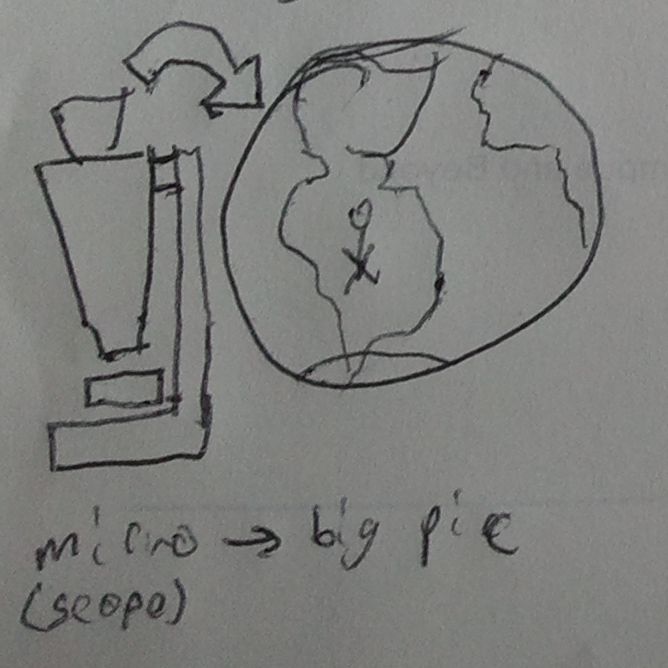 micro → big pic
(scope)